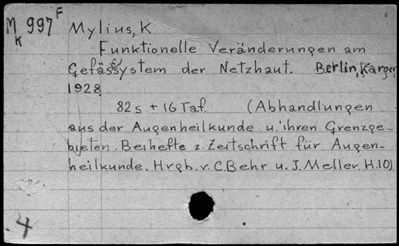 M K 997 F Mylius, K
Funktionelle Veränderungen am
Gefässystem der Netzhaut. Berlin, Karger
1928
82 s + 16 Taf (Abhandlungen
aus der Augenheilkunde u. ihren Grenzge-
bieten. Beihefte z. Zeitschrift für Augen-
heilkunde. Hrgb. v. C Behr u. J. Meller. H. 10)
4